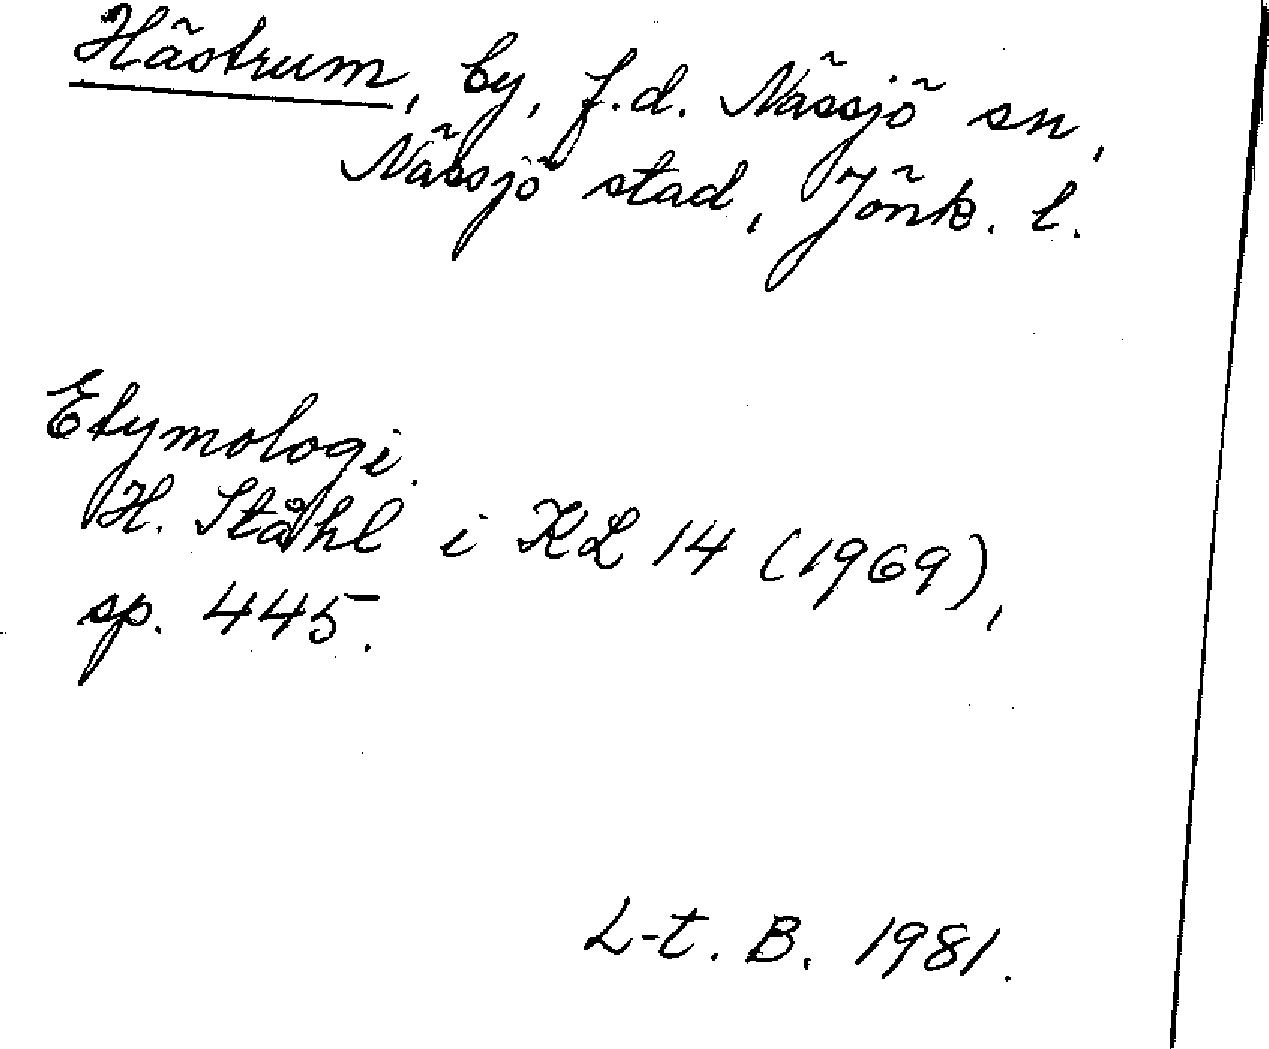 Hästrum, by, f.d. Nässjö sn,
Nässjö stad, Jönk. l.
Etymologi.
H. Ståhl i KL 14 (1969),
sp. 445.
L-t. B. 1981.